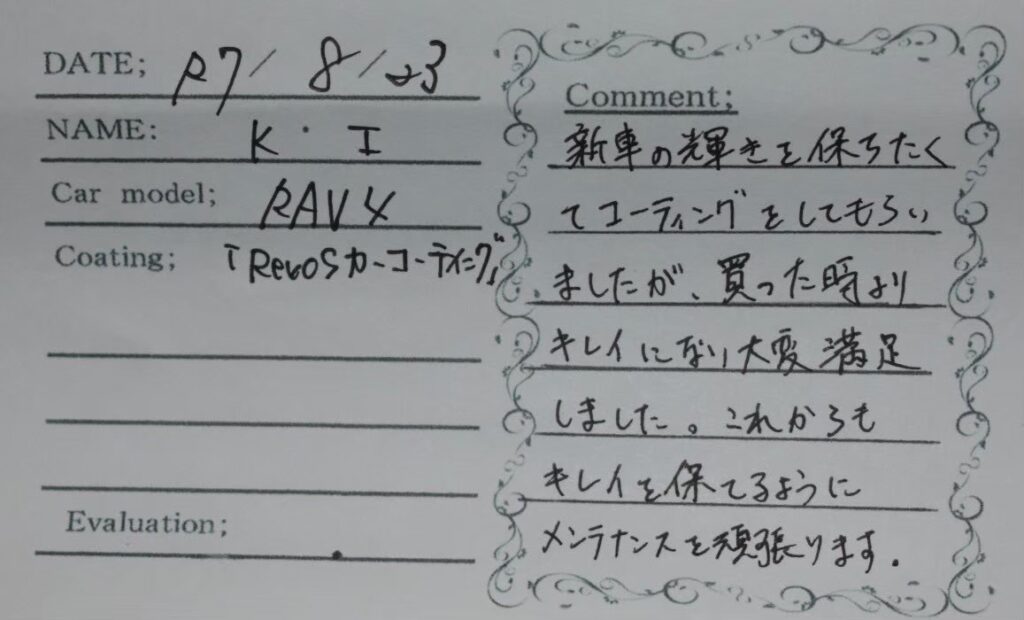 DATE; R7/8/23
NAME: K・I
Car model; RAV4
Coating; 「RevoSカーコーティング」
Evaluation;
Comment;
新車の輝きを保ちたく
てコーティングをしてもらい
ましたが、買った時より
キレイになり大変満足
しました。これからも
キレイを保てるように
メンテナンスを頑張ります.